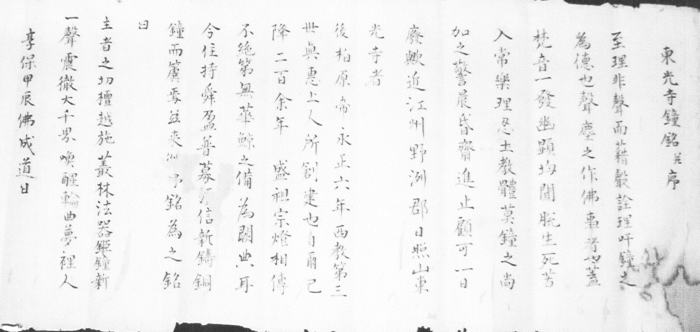 東光寺鐘銘并序
至理非聲而藉聲詮理吁鐘之
為德也聲塵之作佛事者也蓋
梵音一發幽顕均聞脱生死苦
入常樂理忍土教體莫鐘之尚
加之警晨昏齋進止顧可一日
廢歟近江州野洲郡日照山東
光寺者
後柏原帝永正六年西教第三
世真惠上人所創建也自爾已
降二百余年 盛祖宗燈相傳
不絶第無華鯨之備為闕典耳
今住持舜盈普募 信新鑄銅
鐘而簴焉茲来 予銘為之銘
曰
主者之功檀越施 叢林法器 鐘新
一聲震徹大千界 喚醒輪曲夢裡人
享保甲辰佛成道日